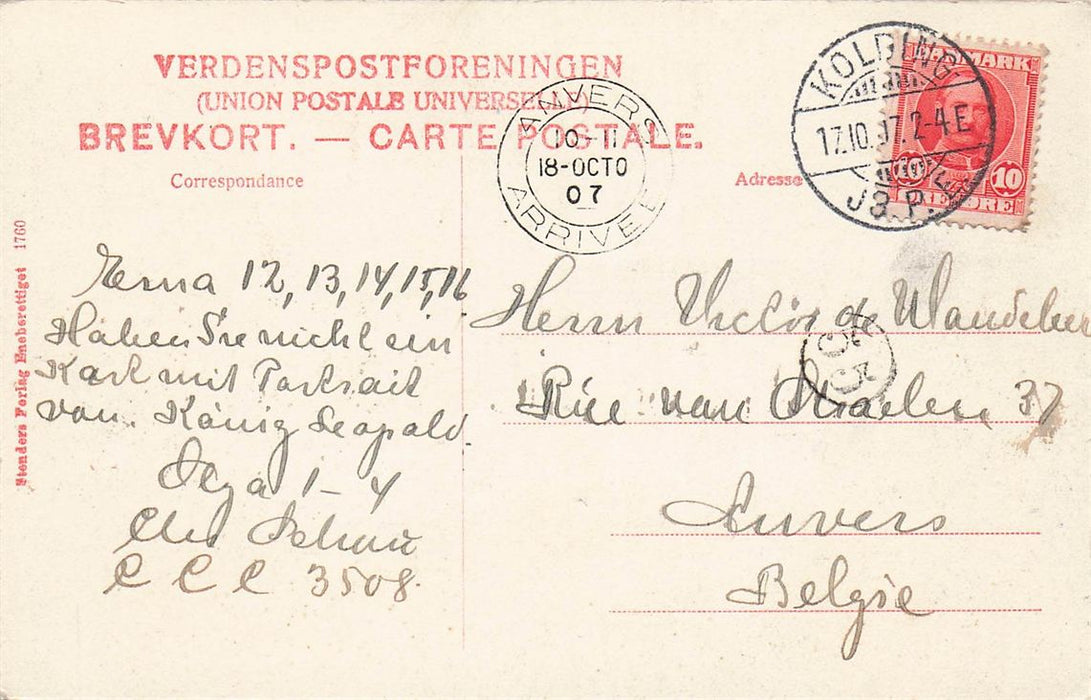 VERDENSPOSTFORENINGEN
(UNION POSTALE UNIVERSELLE)
BREVKORT. — CARTE POSTALE.
Correspondance
Adresse
ANVERS
10-11
18-OCTO
07
ARRIVEE
KOLDING
17.10.07. 2-4 E
J3.P.
DANMARK
10 10
ØRE
Stenders Forlag Eneberettiget 1760
Erna 12, 13, 14, 15, 16
Haben Sie nicht ein
Kart mit Portrait
von König Leopold
1-4
C C C 3508.
Herrn Victor de
Rue van 37
Anvers
Belgie